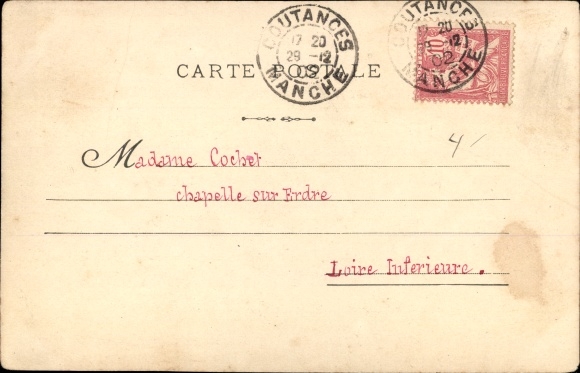 COUTANCES
17 20
29 -12
02
MANCHE
COUTANCES
17 20
-12
02
MANCHE
10
CARTE POSTALE
4/
Madame Cochet
chapelle sur Erdre
Loire Inferieure.